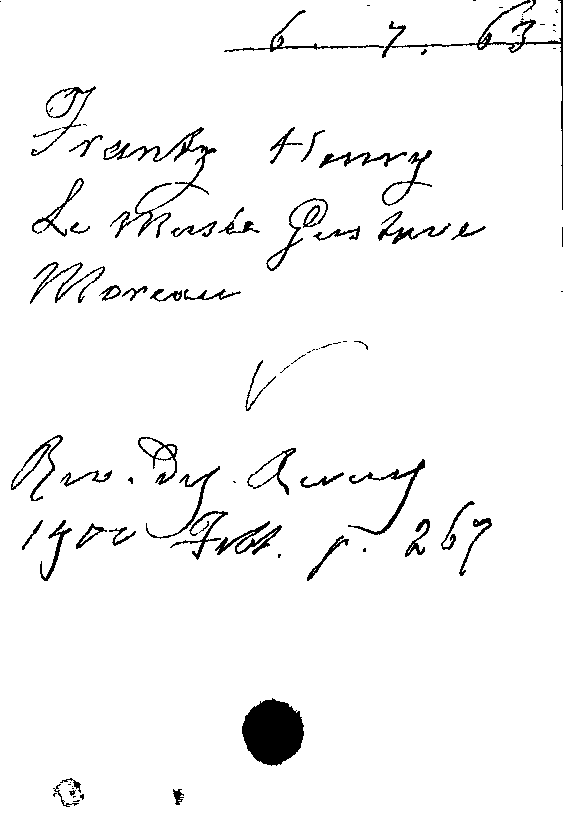 6. 7. 63
Frantz Henry
Le Musée Gustave
Moreau
Rev.
1900 p. 267